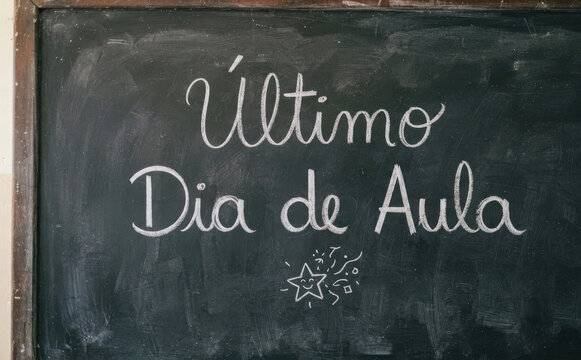 Último
Dia de Aula